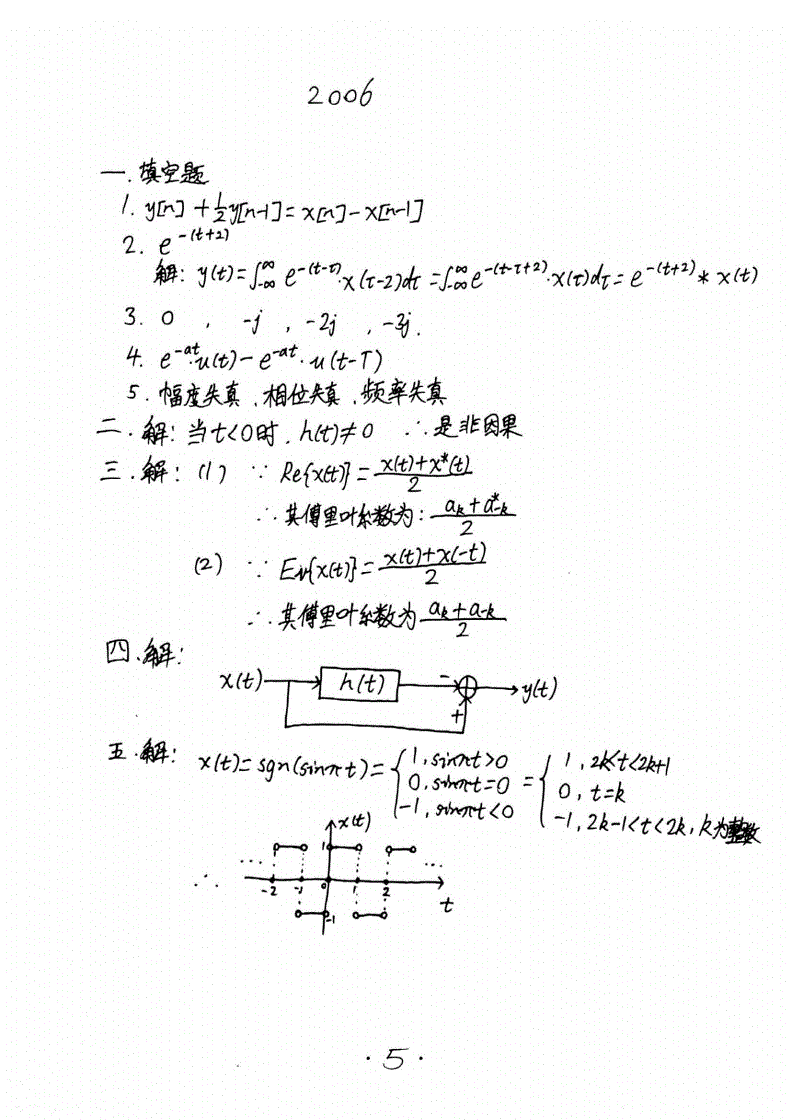 2006
一.填空题
1. y[n] + 1/2 y[n-1] = x[n] - x[n-1]
2. e^{-(t+2)}
解: y(t) = ∫_{-∞}^{∞} e^{-(t-τ)}·x(τ-2)dτ = ∫_{-∞}^{∞} e^{-(t-τ+2)}·x(τ)dτ = e^{-(t+2)} * x(t)
3. 0 , -j , -2j , -3j.
4. e^{-at}·u(t) - e^{-at}·u(t-T)
5. 幅度失真、相位失真、频率失真
二.解: 当t<0时, h(t)≠0 ∴是非因果
三.解: (1) ∵ Re{x(t)} = (x(t)+x*(t))/2
∴其傅里叶系数为: (a_k + a*_{-k})/2
(2) ∵ Ev{x(t)} = (x(t)+x(-t))/2
∴其傅里叶系数为 (a_k + a_{-k})/2
四.解:
x(t) h(t) - + y(t)
五.解: x(t) = sgn(sinπt) = { 1, sinπt>0 = { 1, 2k<t<2k+1
0, sinπt=0 0, t=k
-1, sinπt<0 -1, 2k-1<t<2k, k为整数
x(t)
1
∴ ... ...
-2 -1 0 1 2
t
-1
·5·